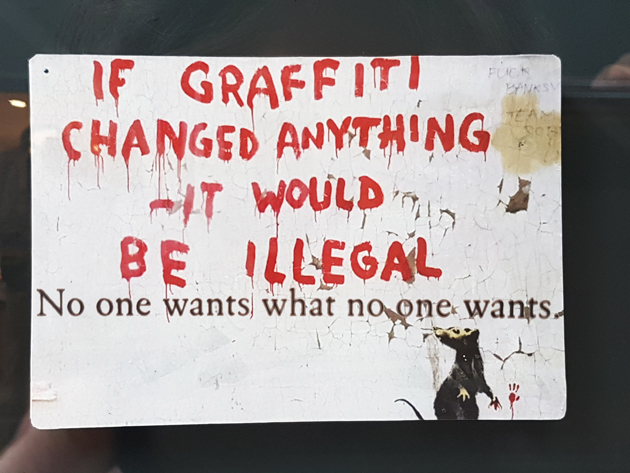 IF GRAFFITI
CHANGED ANYTHING
–IT WOULD
BE ILLEGAL
No one wants what no one wants.
BANKSY
TEAM